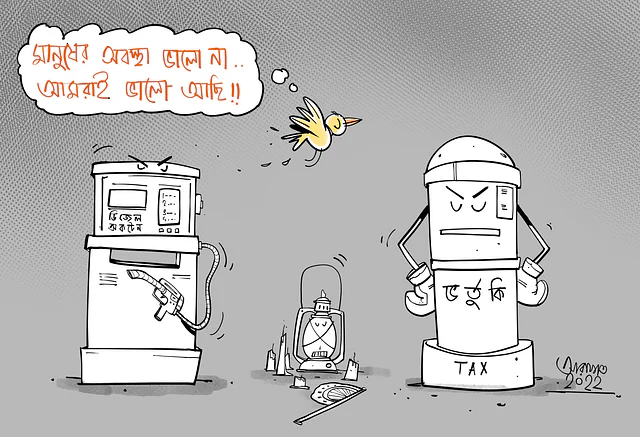 মানুষের অবস্থা ভালো না..
আমরাই ভালো আছি!!
ডিজেল
অকটেন
ভর্তুকি
TAX
2022